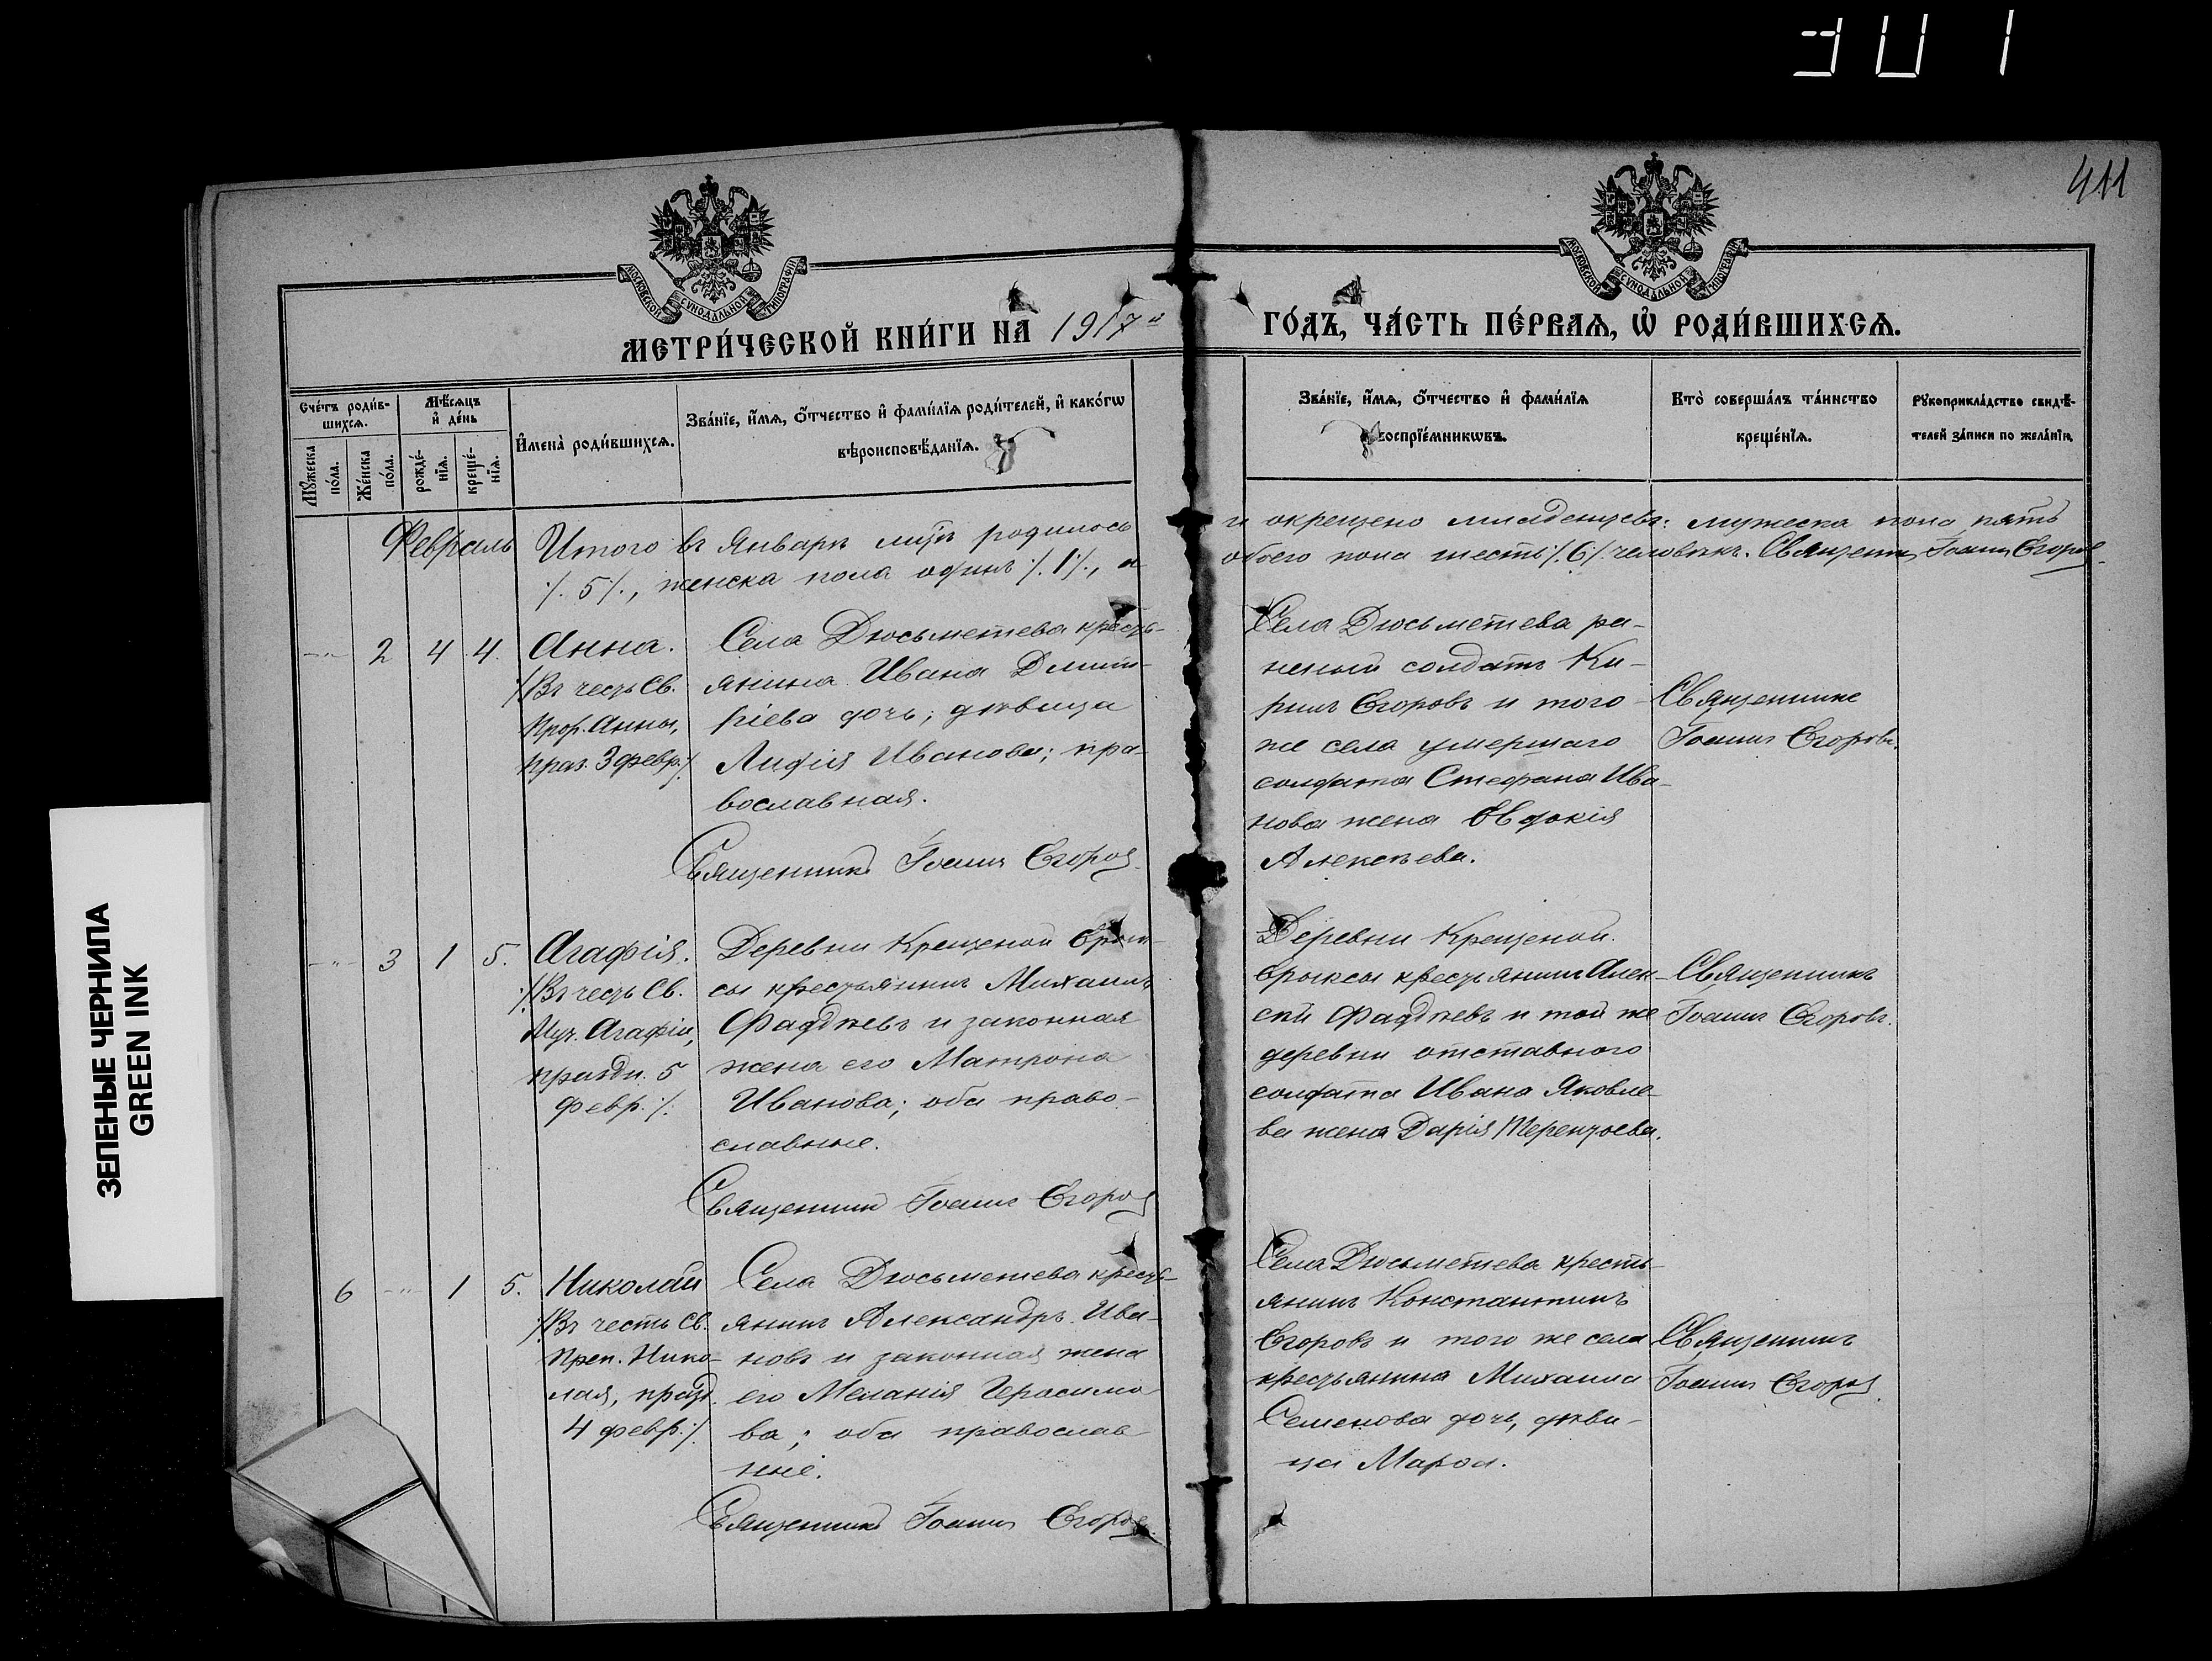 301
411
МОСКОВСКОЙ СУНОДАЛЬНОЙ ТИПОГРАФІИ
МОСКОВСКОЙ СУНОДАЛЬНОЙ ТИПОГРАФІИ
МЕТРИ́ЧЕСКОЙ КНИ́ГИ НА 1917й ГО́ДЪ, ЧА́СТЬ ПЕ́РВАЯ, Ѡ РОДИ́ВШИХСЯ.
Сче́тъ роди́в-
шихся.
Мѣ́сяцъ
и де́нь
Мꙋ́жеска по́ла.
Же́нска по́ла.
рожде́-
нїя.
креще́-
нїя.
И҆мена̀ роди́вшихся.
Зва́нїе, и҆́мя, ѻ҆́тчество и҆ фами́лїя роди́телей, и҆ како́гѡ
вѣроисповѣ́данїя.
Зва́нїе, и҆́мя, ѻ҆́тчество и҆ фами́лїя
воспрїе́мникѡвъ.
Кто̀ соверша́лъ та́инство
креще́нїя.
Рꙋкоприкла́дство свидѣ́-
телей за́писи по жела́нїю.
Февраль
Итого въ Январѣ мцѣ родилось и окрещено младенцевъ: мужеска пола пять
/. 5 /., женска пола одинъ /. 1 /., а обоего пола шесть /. 6 /. человѣкъ. Священникъ Іоаннъ Егоровъ
-"- 2 4 4.
Анна.
/Въ честь Св.
Прор. Анны,
праз. 3 февр./
Села Дюсьметева кресть-
янина Ивана Дмит-
ріева дочь, дѣвица
Лидія Иванова; пра-
вославная.
Священникъ Іоаннъ Егоровъ
Села Дюсьметева ра-
неный солдатъ Ки-
рилъ Егоровъ и того
же села умершаго
солдата Стефана Ива-
нова жена Евдокія
Алексѣева.
Священникъ
Іоаннъ Егоровъ.
-"- 3 1 5.
Агафія.
/Въ честь Св.
Муч. Агафіи,
праздн. 5
февр./.
Деревни Крещеной Ерык-
сы крестьянинъ Михаилъ
Фаддѣевъ и законная
жена его Матрона
Иванова; оба право-
славные.
Священникъ Іоаннъ Егоровъ
Деревни Крещеной
Ерыксы крестьянинъ Алек-
сѣй Фаддѣевъ и той же
деревни отставного
солдата Ивана Яковле-
ва жена Дарія Терентьева.
Священникъ
Іоаннъ Егоровъ.
6 -"- 1 5.
Николай
/Въ честь Св.
Преп. Нико-
лая, празд.
4 февр./.
Села Дюсьметева кресть-
янинъ Александръ Ива-
новъ и законная жена
его Меланія Герасимо-
ва; оба православ-
ные.
Священникъ Іоаннъ Егоровъ
Села Дюсьметева кресть-
янинъ Константинъ
Егоровъ и того же села
крестьянина Михаила
Семенова дочь, дѣви-
ца Марѳа.
Священникъ
Іоаннъ Егоровъ.
ЗЕЛЕНЫЕ ЧЕРНИЛА
GREEN INK